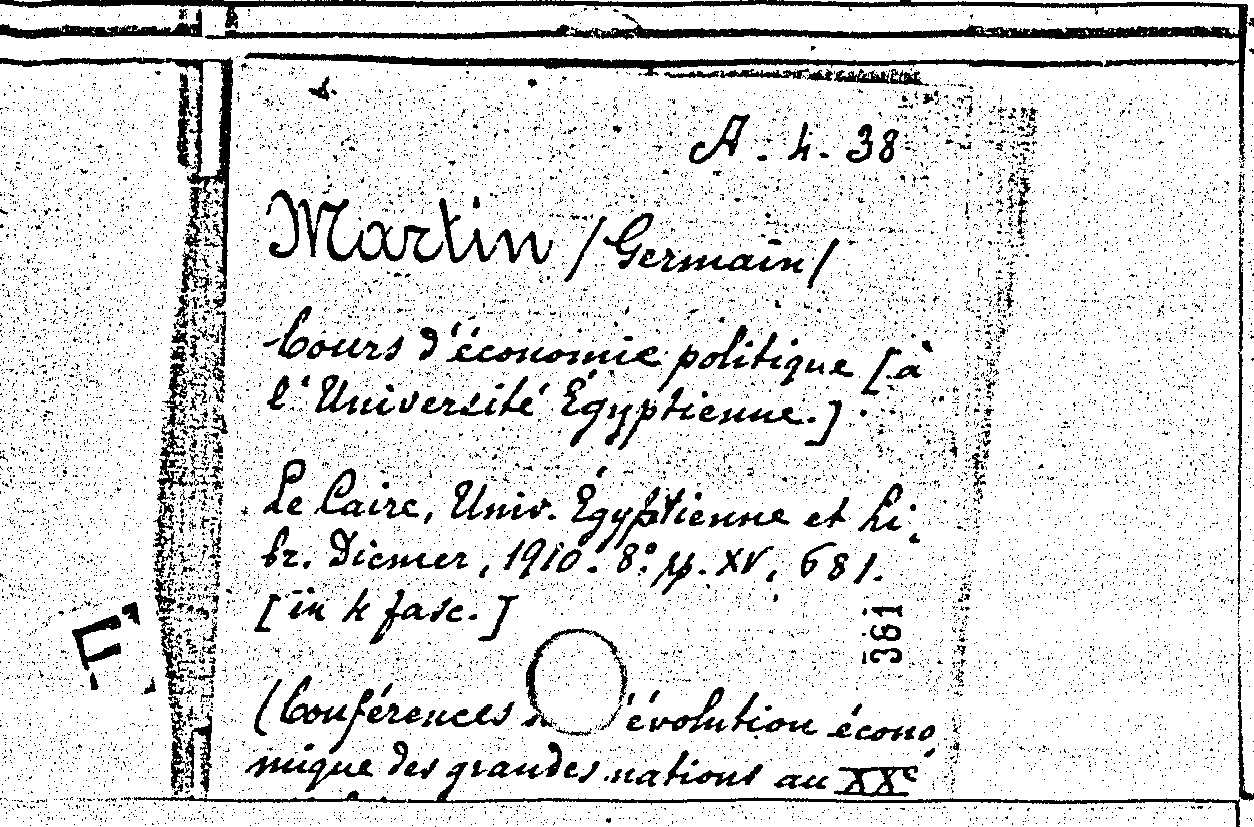 A. 4. 38
Martin / Germain /
Cours d'économie politique [à
l'Université Égyptienne.]
Le Caire, Univ. Égyptienne et Li,
br. Diemer, 1910. 8° pp. XV, 681.
[in 4 fasc.]
361
(Conférences l'évolution écono,
mique des grandes nations au XXe